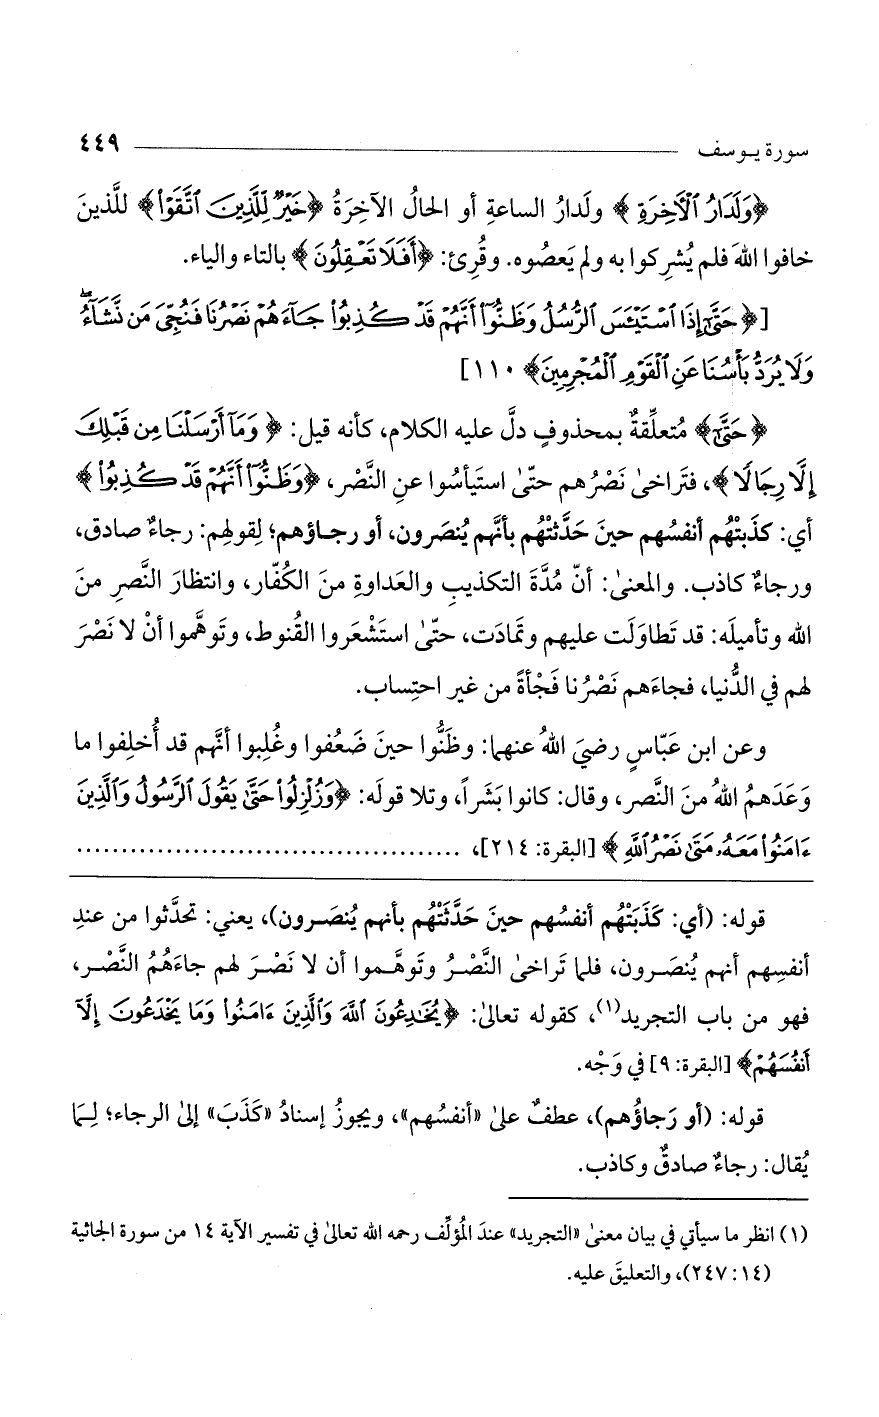 سورة يوسف ٤٤٩
﴿وَلَدَارُ ٱلْأَخِرَةِ﴾ ولَدارُ الساعةِ أو الحالُ الآخِرَةُ ﴿خَيْرٌ لِّلَّذِينَ ٱتَّقَوْا۟﴾ للَّذينَ
خافوا اللهَ فلم يُشرِكوا به ولم يَعصُوه. وقُرِئ: ﴿أَفَلَا تَعْقِلُونَ﴾ بالتاء والياء.
[﴿حَتَّىٰٓ إِذَا ٱسْتَيْـَٔسَ ٱلرُّسُلُ وَظَنُّوٓا۟ أَنَّهُمْ قَدْ كُذِبُوا۟ جَآءَهُمْ نَصْرُنَا فَنُجِّىَ مَن نَّشَآءُ ۖ
وَلَا يُرَدُّ بَأْسُنَا عَنِ ٱلْقَوْمِ ٱلْمُجْرِمِينَ﴾ ١١٠]
﴿حَتَّىٰٓ﴾ مُتعلِّقةٌ بمحذوفٍ دلَّ عليه الكلام، كأنه قيل: ﴿وَمَآ أَرْسَلْنَا مِن قَبْلِكَ
إِلَّا رِجَالًا﴾، فتَراخىٰ نَصْرُهم حتّىٰ استَيأسُوا عنِ النَّصْر، ﴿وَظَنُّوٓا۟ أَنَّهُمْ قَدْ كُذِبُوا۟﴾
أي: كذَبَتْهُم أنفسُهم حينَ حَدَّثتْهُم بأنَّهم يُنصَرون، أو رجاؤهم؛ لِقولهِم: رجاءٌ صادق،
ورجاءٌ كاذب. والمعنىٰ: أنّ مُدَّةَ التكذيبِ والعَداوةِ منَ الكُفّار، وانتظارَ النَّصرِ منَ
الله وتأميلَه: قد تَطاوَلَت عليهم وتمادَت، حتّىٰ استَشْعَروا القُنوط، وتَوهَّموا أنْ لا نَصْرَ
لهم في الدُّنيا، فجاءَهم نَصْرُنا فَجْأةً من غيرِ احتِساب.
وعن ابن عَبّاسٍ رضيَ اللهُ عنهما: وظَنُّوا حينَ ضَعُفوا وغُلِبوا أنَّهم قد أُخلِفوا ما
وَعَدَهمُ اللهُ منَ النَّصر، وقال: كانوا بَشَراً، وتلا قولَه: ﴿وَزُلْزِلُوا۟ حَتَّىٰ يَقُولَ ٱلرَّسُولُ وَٱلَّذِينَ
ءَامَنُوا۟ مَعَهُۥ مَتَىٰ نَصْرُ ٱللَّهِ﴾ [البقرة: ٢١٤]، ............................................
قوله: (أي: كَذَبَتْهُم أنفسُهم حينَ حَدَّثَتْهُم بأنهم يُنصَرون)، يعني: تحدَّثوا من عندِ
أنفسِهم أنهم يُنصَرون، فلما تَراخىٰ النَّصْرُ وتَوهَّموا أن لا نَصْرَ لهم جاءَهُمُ النَّصْر،
فهو من باب التجريد(١)، كقوله تعالىٰ: ﴿يُخَٰدِعُونَ ٱللَّهَ وَٱلَّذِينَ ءَامَنُوا۟ وَمَا يَخْدَعُونَ إِلَّآ
أَنفُسَهُمْ﴾ [البقرة: ٩] في وَجْه.
قوله: (أو رَجاؤُهم)، عطفٌ علىٰ «أنفسُهم»، ويجوزُ إسنادُ «كَذَبَ» إلىٰ الرجاء؛ لِما
يُقال: رجاءٌ صادقٌ وكاذب.
(١) انظر ما سيأتي في بيان معنىٰ «التجريد» عندَ المُؤلِّف رحمه الله تعالىٰ في تفسير الآية ١٤ من سورة الجاثية
(١٤: ٢٤٧)، والتعليقَ عليه.